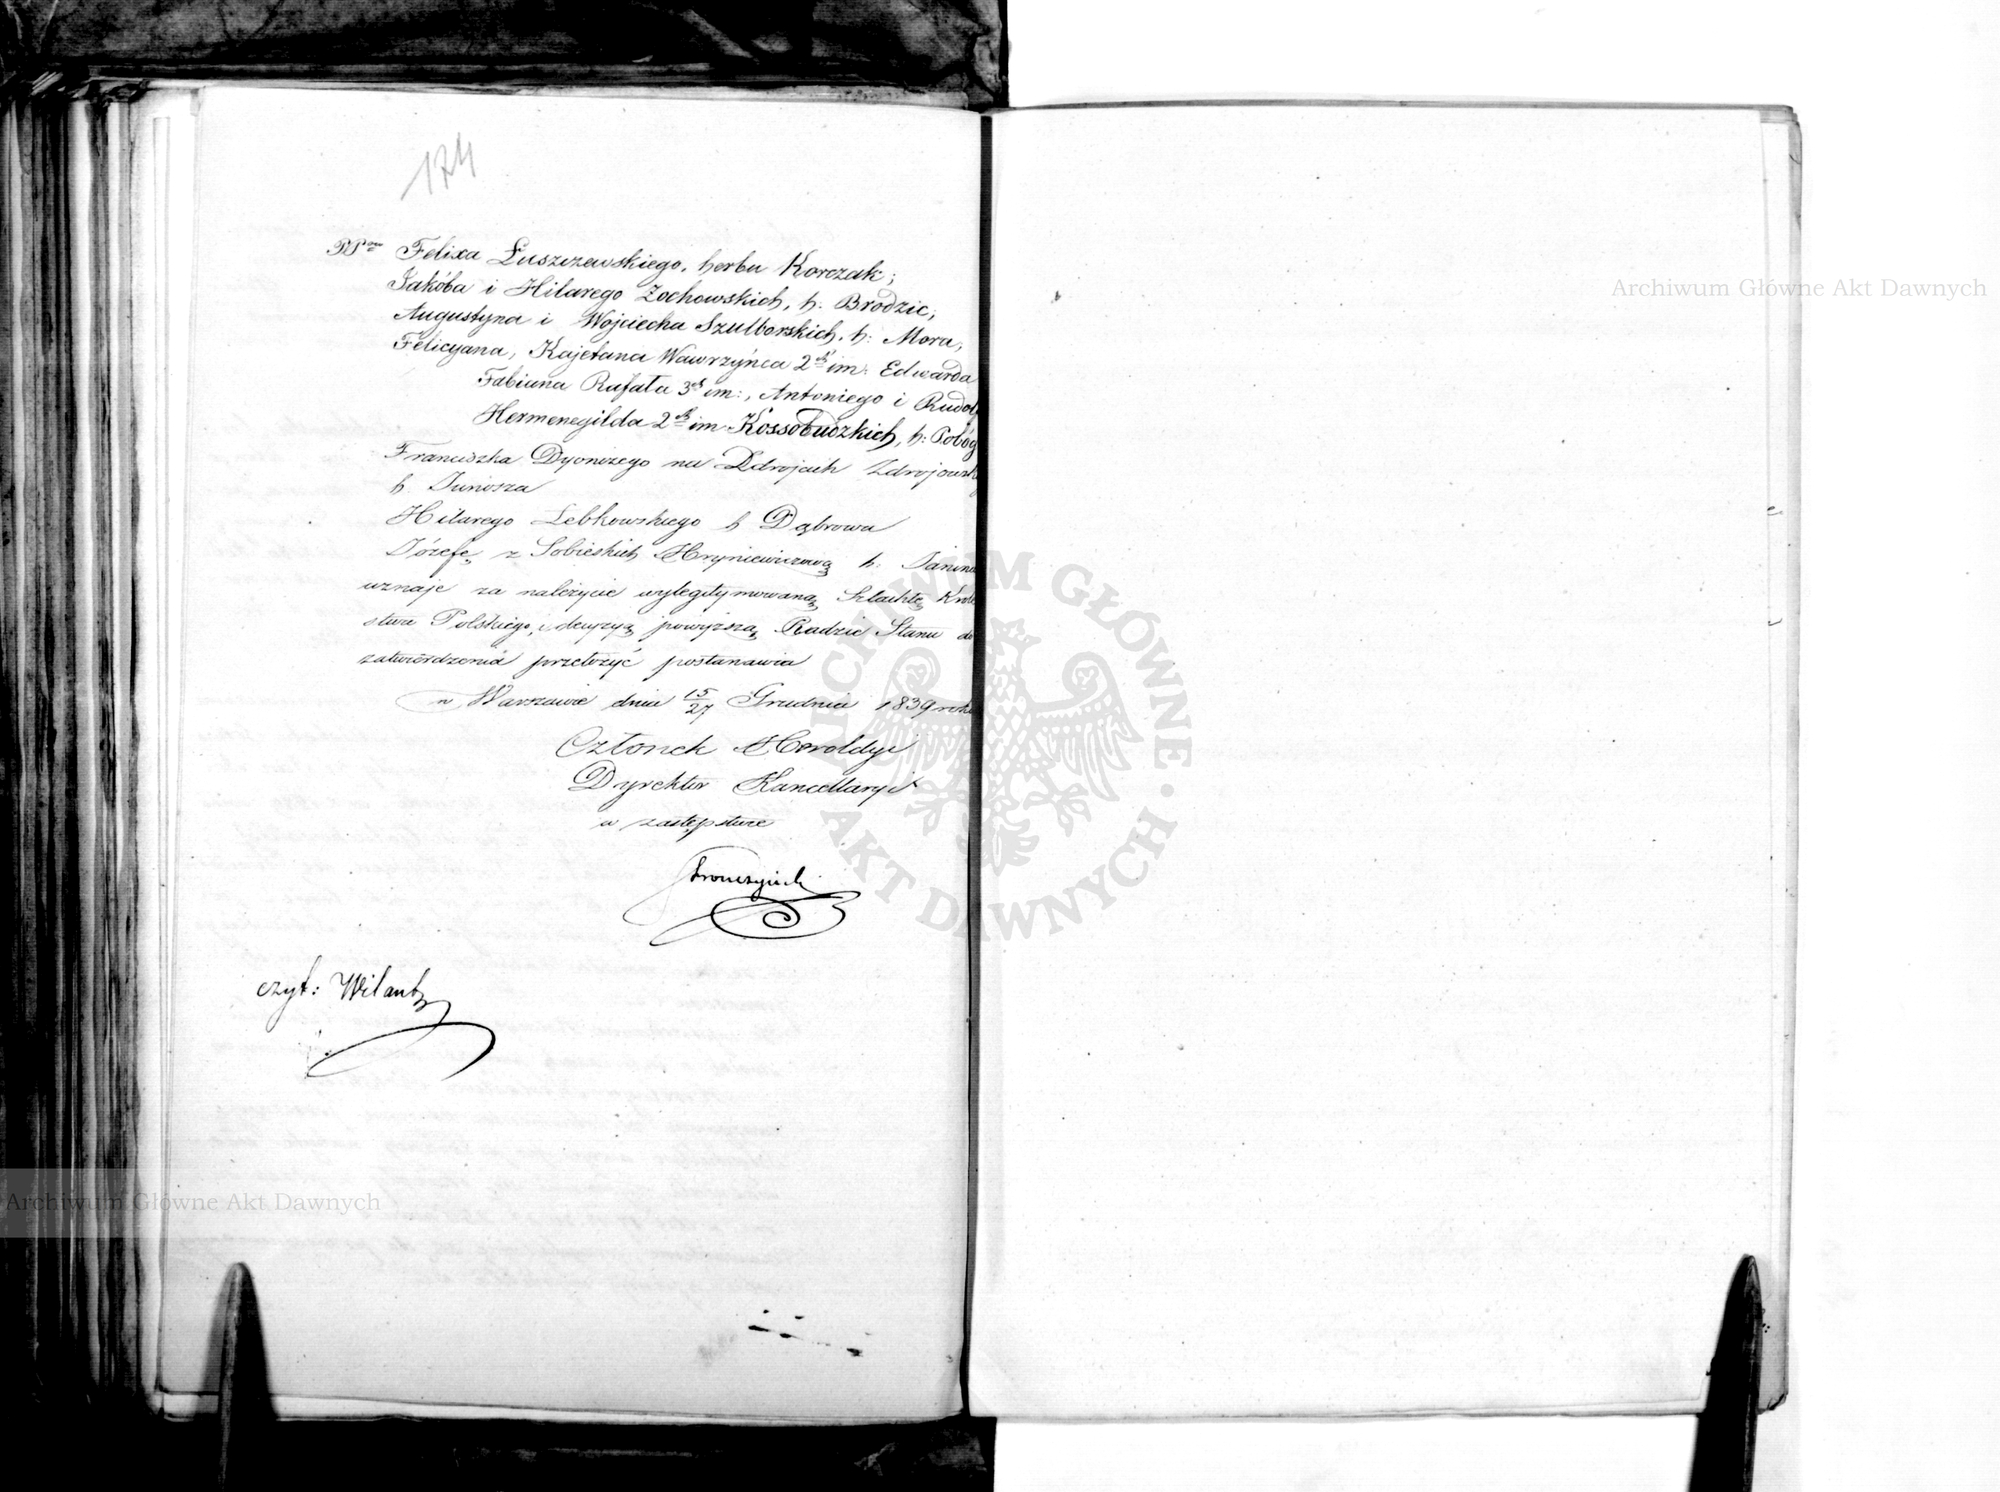 174
PPów Felixa Łuszczewskiego, herbu Korczak;
Jakóba i Hilarego Żochowskich, h. Brodzic,
Augustyna i Wojciecha Szulborskich, h: Mora,
Felicyana, Kajetana Wawrzyńca 2ch im: Edwarda
Fabiana Rafała 3ch im:, Antoniego i Rudol
Hermenegilda 2ch im Kossobudzkich, h: Pobóg
Franciszka Dyonizego na Zdrojach Zdrojowsk
h. Junosza
Hilarego Łebkowskiego h Dąbrowa
Józefę z Sobieskich Hryniewiczową h. Janina
uznaje za należycie wylegitymowaną Szlachtę Króle
stwa Polskiego, i decyzyą powyższą Radzie Stanu do
zatwierdzenia przełożyć postanawia
w Warszawie dnia 15/27 Grudnia 1839 roku
Członek Heroldyi
Dyrektor Kancellaryi
w zastępstwie
czyt: Wilantz
Archiwum Główne Akt Dawnych
Archiwum Główne Akt Dawnych
ARCHIWUM GŁÓWNE AKT DAWNYCH